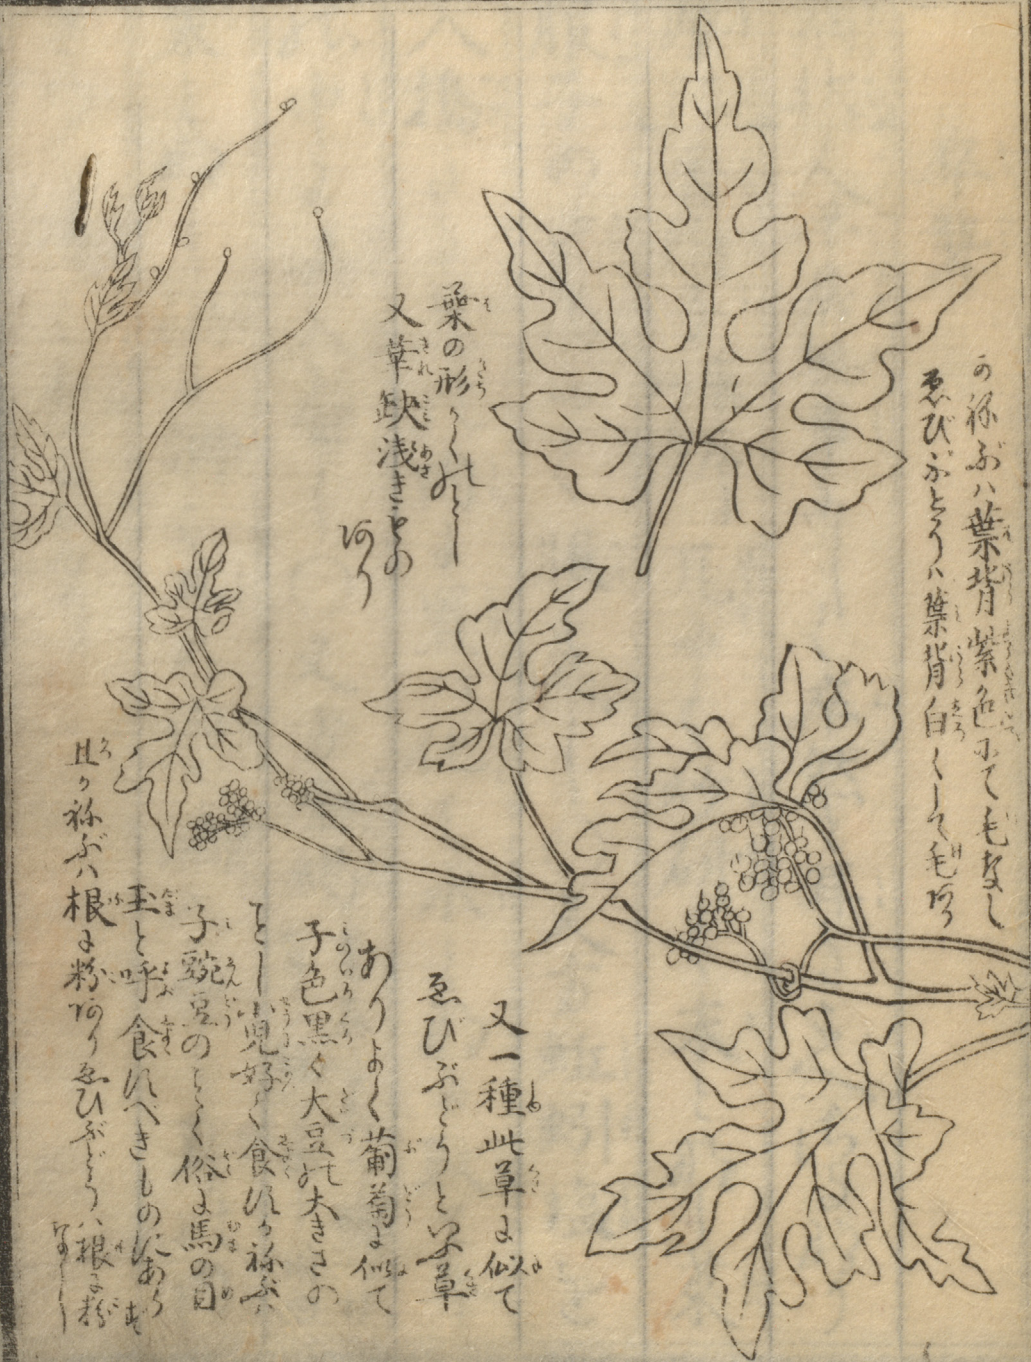 かねぶハ葉背紫色にて毛なし
ゑびぶとうハ葉背白くして毛あり
葉の形かくのごとし
又華缺浅きもの
あり
又一種此草に似て
ゑびぶどうといふ草
ありよく葡萄に似て
子色黒く大豆の大きさの
ごとし小児好く食すかねぶハ
子豌豆のごとく俗に馬の目
玉と呼食すべきものにあらず
且かねぶハ根に粉ありゑひぶどうハ根に粉
なし